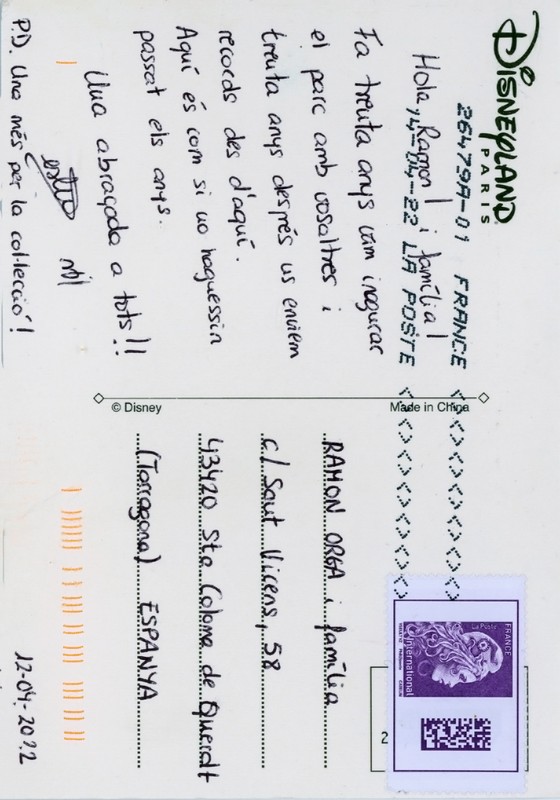 DISNEYLAND
PARIS
26479A-01 FRANCE
14-04-22 LA POSTE
Hola, Ramon! i família!
Fa trenta anys vam inagurar
el parc amb vosaltres i
trenta anys després us enviem
records des d'aquí.
Aquí és com si no haguessin
passat els anys.
Una abraçada a tots!!
P.D. Una més per la col·lecció!
© Disney
Made in China
RAMON ORGA i família
c/ Sant Vicens, 58
43420 Sta Coloma de Queralt
(Tarragona) ESPANYA
12-04-2022
FRANCE
La Poste
International
2